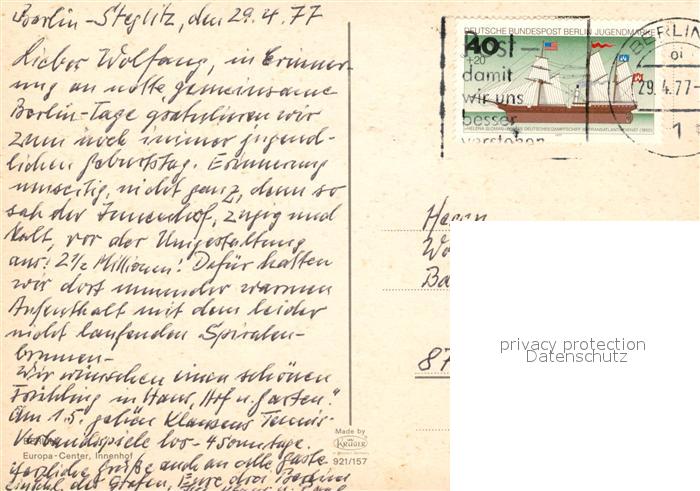 Berlin-Steglitz, den 29.4.77
Lieber Wolfgang, in Erinner-
ung an nette gemeinsame
Berlin-Tage gratulieren wir
zum noch immer jugend-
lichen Geburtstag. Erinnerung
umseitig, nicht ganz, denn so
sah der Innenhof, zugig und
kalt, vor der Umgestaltung
aus! 2 1/2 Millionen! Dafür hatten
wir dort nunmehr warmen
Aufenthalt mit dem leider
nicht laufenden Spiralen-
brunnen-
Wir wünschen einen schönen
Frühling in Haus, Hof u. Garten!
Am 1.5. gehen Klausens Tennis-
Verbandsspiele los - 4 Sonntage.
Herzliche Grüße auch an alle Gäste
einschl. der Grafen, Eure drei Berliner
BERLIN
Europa-Center, Innenhof
Made by
KRÜGER
921/157
DEUTSCHE BUNDESPOST BERLIN JUGENDMARKE
40
+20
damit
wir uns
besser
verstehen
BERLIN
29.4.77-
1
Herrn
Wo
Ba
87
privacy protection
Datenschutz